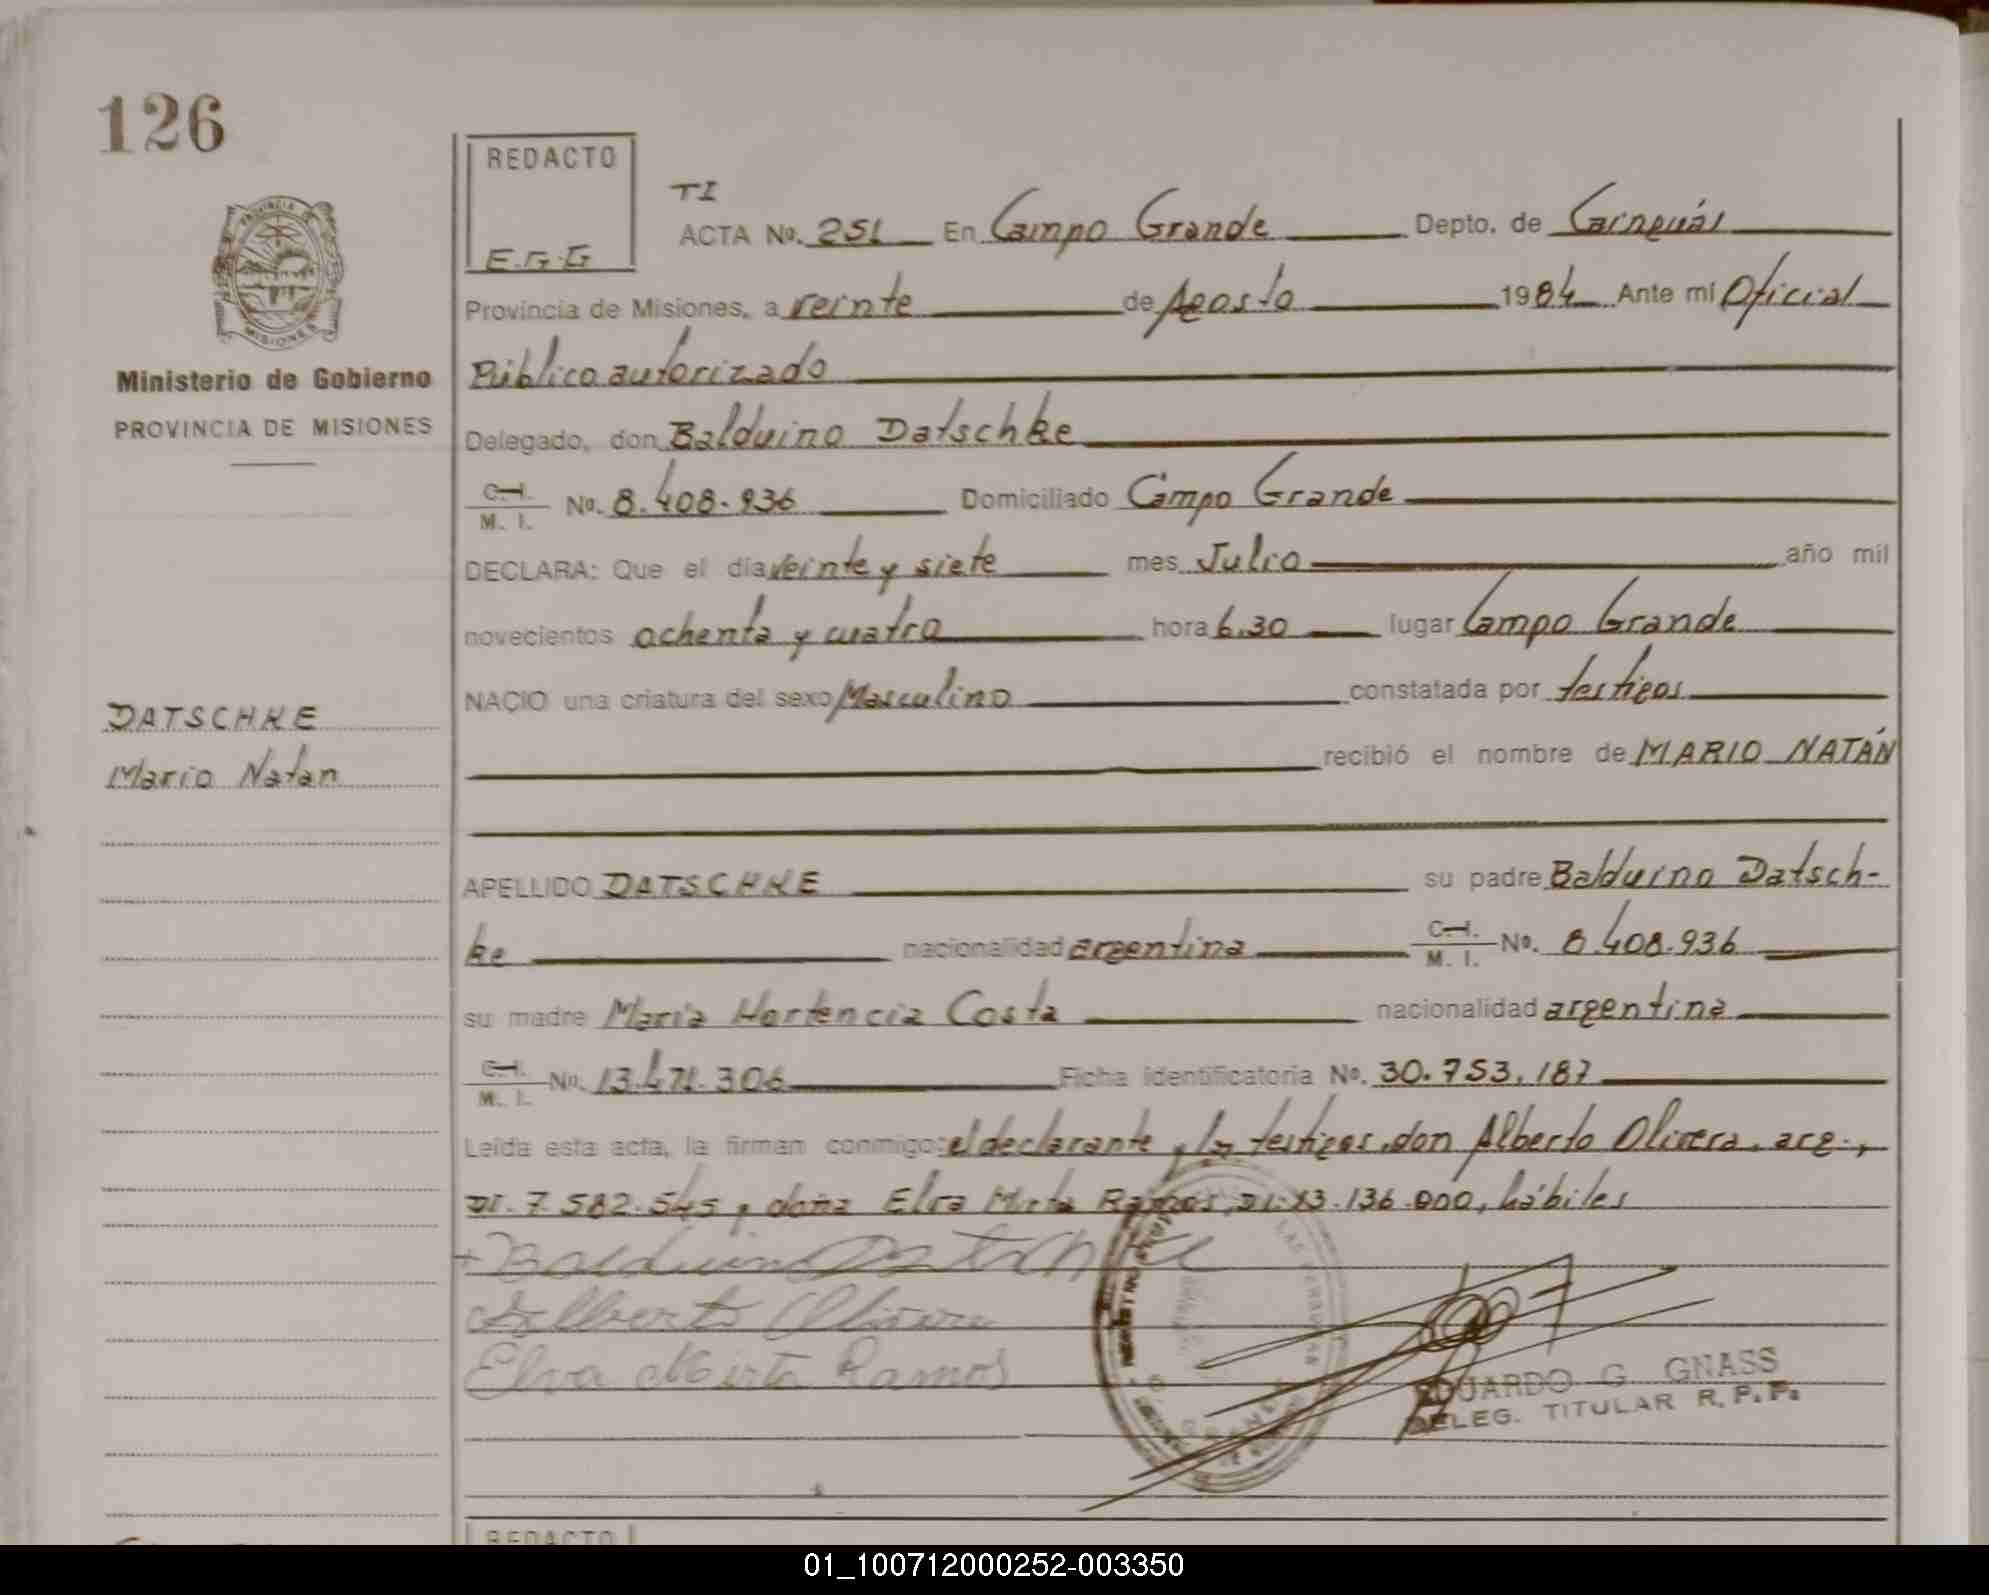 126
REDACTO
E.G.G
PROVINCIA DE
MISIONES
Ministerio de Gobierno
PROVINCIA DE MISIONES
TI
ACTA No. 251 En Campo Grande Depto. de Cainguás
Provincia de Misiones, a veinte de Agosto 1984 Ante mi Oficial
Público autorizado
Delegado, don Balduino Datschke
C.I. M. I. No. 8.408.936 Domiciliado Campo Grande
DECLARA: Que el día veinte y siete mes Julio año mil
novecientos ochenta y cuatro hora 6.30 lugar Campo Grande
NACIO una criatura del sexo Masculino constatada por testigos
DATSCHKE
Mario Natan
recibió el nombre de MARIO NATÁN
APELLIDO DATSCHKE su padre Balduino Datsch-
ke nacionalidad argentina C.I. M. I. No. 8.408.936
su madre Maria Hortencia Costa nacionalidad argentina
C.I. M. I. No. 13.471.306 Ficha identificatoria No. 30.753.187
Leída esta acta, la firman conmigo: el declarante y los testigos, don Alberto Olivera, arg.,
DI. 7.582.545 y doña Elva Mirta Ramos, DI. 13.136.000, hábiles
Balduino Datschke
Alberto Olivera
Elva Mirta Ramos
EDUARDO G. GNASS
DELEG. TITULAR R. P. P.
REDACTO
01_100712000252-003350